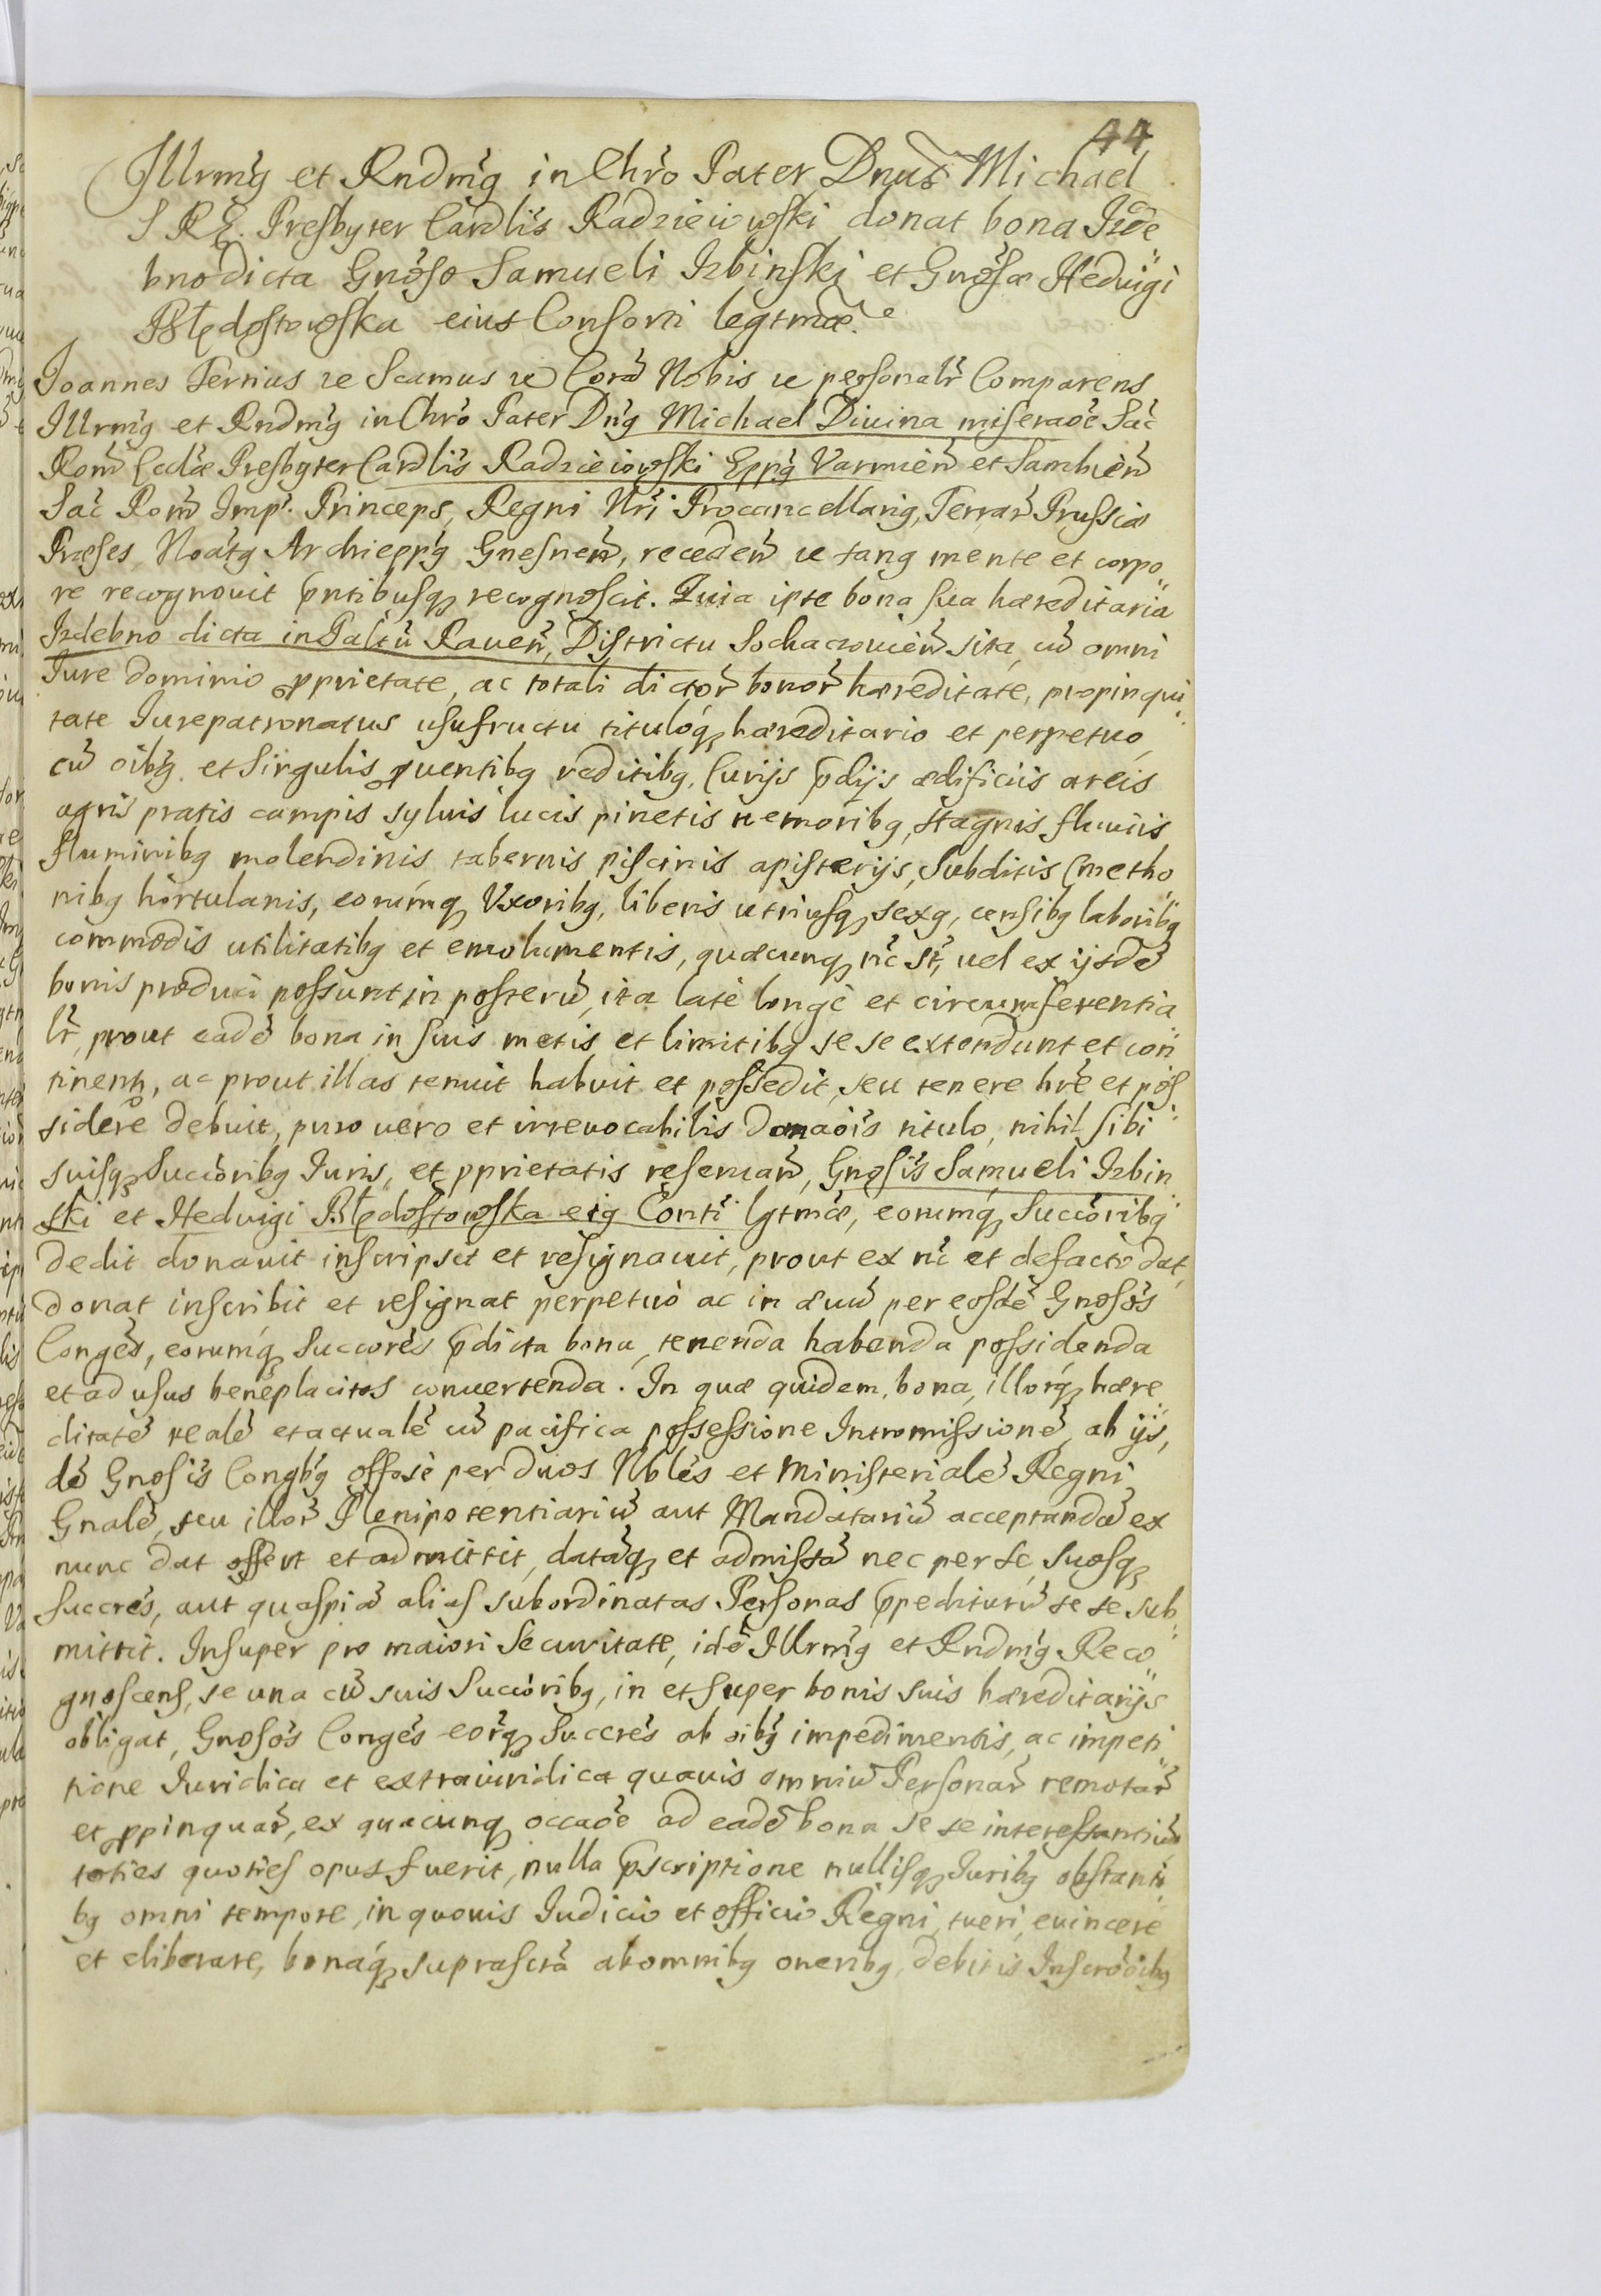 44
Illrm9 et Rndm9 in Chro Pater Dnus Michael
S R E. Presbyter Cardlis Radzieiowski donat bona Izde
bno dicta Gnoso Samueli Izbinski et Gnosæ Hedvigi
Błędostowska eius Consorti legtmæ.
Joannes Tertius re Scamus re Corã Nobis re personalr Comparens
Illrm9 et Rndm9 in Chro Pater Dn9 Michael Diuina miseraoe Sac
Rom Eccliæ Presbyter Cardlis Radzieiowski Epp9 Varmien et Sambien
Sac Rom Imp. Princeps, Regni Nri Procancellari9, Terrar Prussiæ
Præses, Noat9 Archiepp9 Gnesnen, receden re san9 mente et corpo
re recognouit pntibusq recognoscit. Quia ipse bona sua hæreditaria
Izdebno dicta in Paltu Rauen, Districtu Sochaczouien sita, cũ omni
Iure dominio pprietate, ac totali dictor bonor hæreditate, propinqui
tate Iurepatronatus usufructu tituloq hæreditario et perpetuo,
cũ oib9 et Singulis puentib9 reditib9, Curijs pdijs ædificiis areis
agris pratis campis syluis lucis pinetis nemorib9, stagnis fluuiis
fluminib9 molendinis tabernis piscinis apisterijs, Subditis Cmetho
nib9 hortulanis, eorumq Vxorib9, liberis utriusq sex9, censib9 laborib9
commodis utilitatib9 et emolumentis, quæcunq nc st, uel ex ijsdẽ
bonis produci possunt in posterũ, ita latè longè et circumferentia
lr, prout eadẽ bona in suis metis et limitib9 se se extendunt et con
tinent, ac prout illas tenuit habuit et possedit, seu tenere hre et pos
sidere debuit, puro uero et irreuocabilis Donaois titulo, nihil sibi
suisq Succorib9 Iuris, et pprietatis reseruan, Gnosis Samueli Izbin
ski et Hedvigi Błędostowska ei9 Conti lgtmæ, eorumq Succorib9
dedit donauit inscripsit et resignauit, prout ex nc et defacto dat,
donat inscribit et resignat perpetuò ac in æuũ per eosdẽ Gnosos
Conges, eorumq Succores pdicta bona, tenenda habenda possidenda
et ad usus beneplacitos conuertenda. In quæ quidem bona, illorq hære
ditatẽ realẽ et actualẽ cũ pacifica possessione Intromissionẽ, ab ijs,
dẽ Gnosis Congb9 offose per duos Nbles et Ministerialẽ Regni
Gnalẽ, seu illor Plenipotentiariũ aut Mandatariũ acceptandã ex
nunc dat offert et admittit, datãq et admissã nec per se, suosq
succres, aut quaspiã alias subordinatas Personas ppediturũ se se sub
mittit. Insuper pro maiori Securitate, idẽ Illrm9 et Rndm9 Reco
gnoscens, se una cũ suis Succorib9, in et super bonis suis hæreditarijs
obligat, Gnosos Conges eorq Succres ab oib9 impedimentis, ac impeti
tione Iuridica et extraiuridica quauis omniũ Personar remotar
et ppinquar, ex quacunq occaoe ad eadẽ bona se se interessantiũ
toties quoties opus fuerit, nulla pscriptione nullisq Iurib9 obstanti
b9 omni tempore, in quouis Iudicio et officio Regni, tueri, euincere
et eliberare, bonaq suprascta ab omnib9 onerib9, debitis Inscroõib9